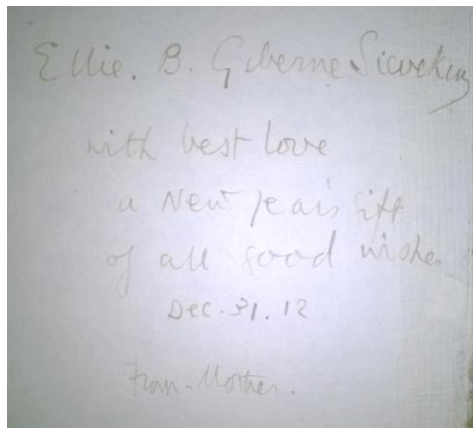 Ellie. B. Giberne Sieveking
with best love
a New Year's Gift
of all good wishes
Dec. 31. 12
From Mother.